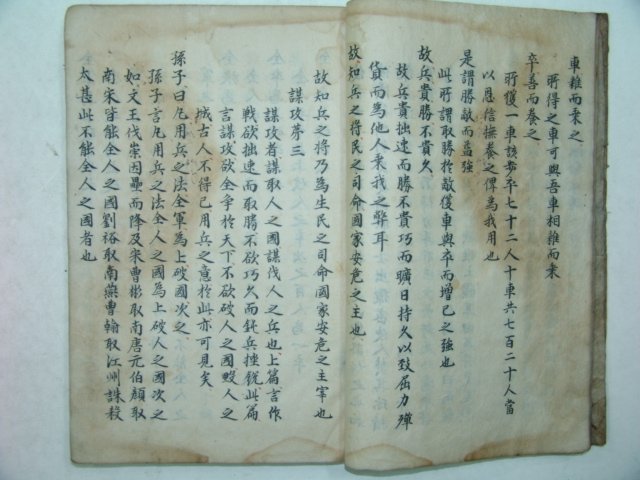 車雜而乘之
所得之車可與吾車相雜而乘
卒善而養之
所獲一車該步卒七十二人十車共七百二十人當
以恩信撫養之俾爲我用也
是謂勝敵而益強
此所謂取勝於敵後車與卒而增己之強也
故兵貴勝不貴久
故兵貴拙速而勝不貴巧而曠日持久以致屈力殫
貨而為他人乘我之弊耳
故知兵之將民之司命國家安危之主也
故知兵之將乃為生民之司命國家安危之主宰也
謀攻第三
謀攻者謀取人之國謀伐人之兵也上篇言作
戰欲拙速而取勝不欲巧久而鈍兵挫銳此篇
言謀攻欲全爭於天下不欲破人之國毀人之
城古人不得已用兵之意於此亦可見矣
孫子曰凡用兵之法全軍為上破國次之
孫子言凡用兵之法全人之國爲上破人之國次之
如文王伐崇因壘而降及宋曹彬取南唐元伯顏取
南宋皆能全人之國劉裕取南燕曹翰取江州誅殺
太甚此不能全人之國者也